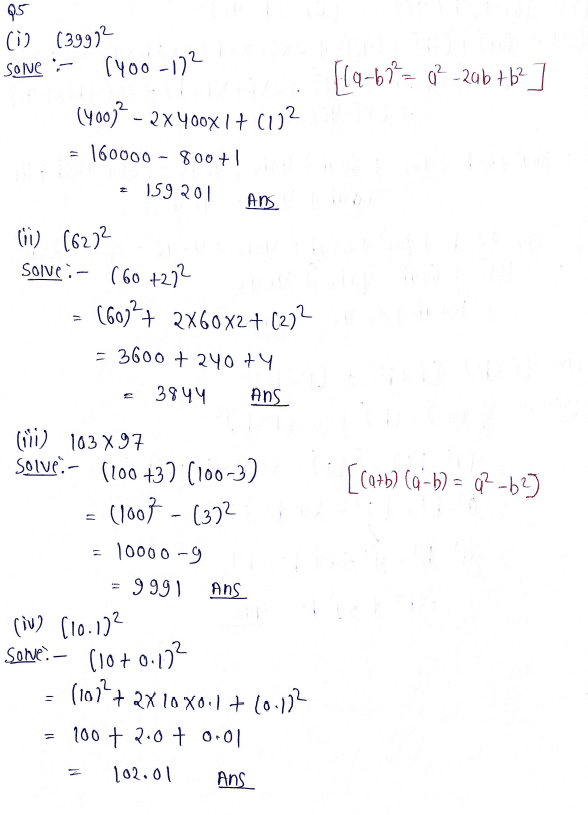 Q5
(i) (399)²
Solve :- (400 -1)² [(a-b)² = a² -2ab +b²]
(400)² - 2×400×1 + (1)²
= 160000 - 800 + 1
= 159201 Ans
(ii) (62)²
Solve :- (60 +2)²
= (60)² + 2×60×2 + (2)²
= 3600 + 240 + 4
= 3844 Ans
(iii) 103 × 97
Solve :- (100 +3) (100 -3) [(a+b) (a-b) = a² - b²]
= (100)² - (3)²
= 10000 - 9
= 9991 Ans
(iv) (10.1)²
Solve :- (10 + 0.1)²
= (10)² + 2×10×0.1 + (0.1)²
= 100 + 2.0 + 0.01
= 102.01 Ans